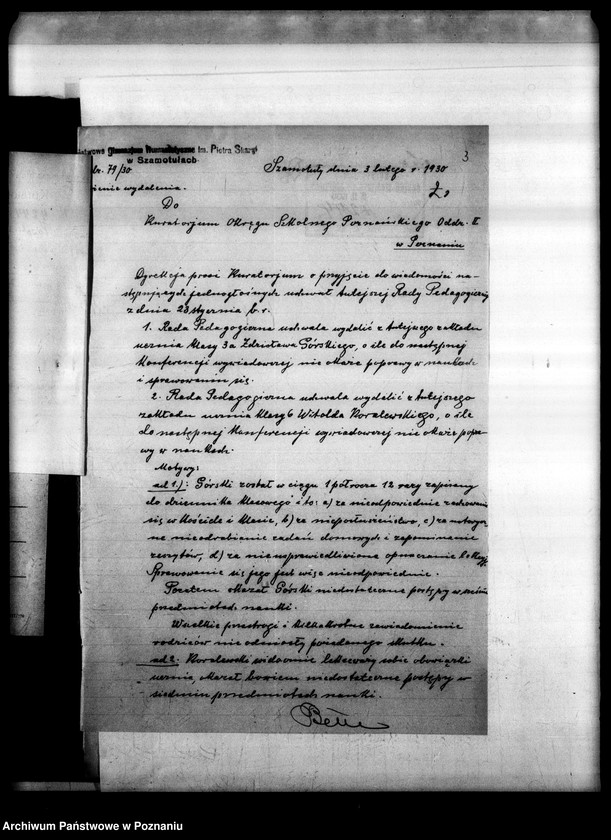 im. Piotra Skargi
w Szamotułach
3
Szamotuły dnia 3 lutego r. 1930
Nr. 79/30
wydalenia.
Do
Kuratorjum Okręgu Szkolnego Poznańskiego Oddz. II
w Poznaniu
Dyrekcja prosi Kuratorjum o przyjęcie do wiadomości na-
stępujących jednogłośnych uchwał tutejszej Rady Pedagogicznej
z dnia 23 stycznia b. r.
1. Rada Pedagogiczna uchwala wydalić z tutejszego zakładu
ucznia klasy 3a Zdzisława Górskiego, o ile do następnej
Konferencji wywiadowczej nie okaże poprawy w naukach
i sprawowaniu się.
2. Rada Pedagogiczna uchwala wydalić z tutejszego
zakładu ucznia klasy 6 Witolda Koralewskiego, o ile
do następnej Konferencji wywiadowczej nie okaże popra-
wy w naukach.
Motywy:
ad 1.): Górski został w ciągu 1 półrocza 12 razy zapisany
do dziennika klasowego i to: a) za nieodpowiednie zachowanie
się w Kościele i klasie, b) za nieposłuszeństwo, c) za notorycz-
ne nieodrabianie zadań domowych i zapominanie
zeszytów, d) za nieusprawiedliwione opuszczanie lekcyj.
Sprawowanie się jego jest więc nieodpowiednie.
Pozatem okazał Górski niedostateczne postępy w
przedmiotach nauki.
Wszelkie przestrogi i kilkakrotne zawiadomienie
rodziców nie odniosły pożądanego skutku.
ad 2.: Koralewski widocznie lekceważy sobie obowiązki
ucznia, okazał bowiem niedostateczne postępy w
siedmiu przedmiotach nauki.
Archiwum Państwowe w Poznaniu